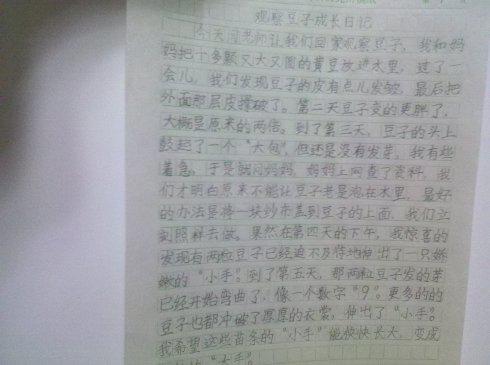 观察豆子成长日记
今天闫老师让我们回家观察豆子，我和妈
妈把十多颗又大又圆的黄豆放进水里，过了一
会儿，我们发现豆子的皮有点儿发皱，最后把
外面那层皮撑破了。第二天豆子变的更胖了，
大概是原来的两倍。到了第三天，豆子的头上
鼓起了一个“大包”，但还是没有发芽，我有些
着急，于是就问妈妈，妈妈上网查了资料，我
们才明白原来不能让豆子老是泡在水里，最好
的办法是将一块纱布盖到豆子的上面，我们立
刻照样去做。果然在第四天的下午，我惊喜的
发现有两粒豆子已经迫不及待地伸出了一只娇
嫩的“小手”。到了第五天，那两粒豆子发的芽
已经开始弯曲了，像一个数字“9”。更多的的
豆子也都冲破了厚厚的衣裳，伸出了“小手”。
我希望这些苗条的“小手”能快快长大，变成
“大手”